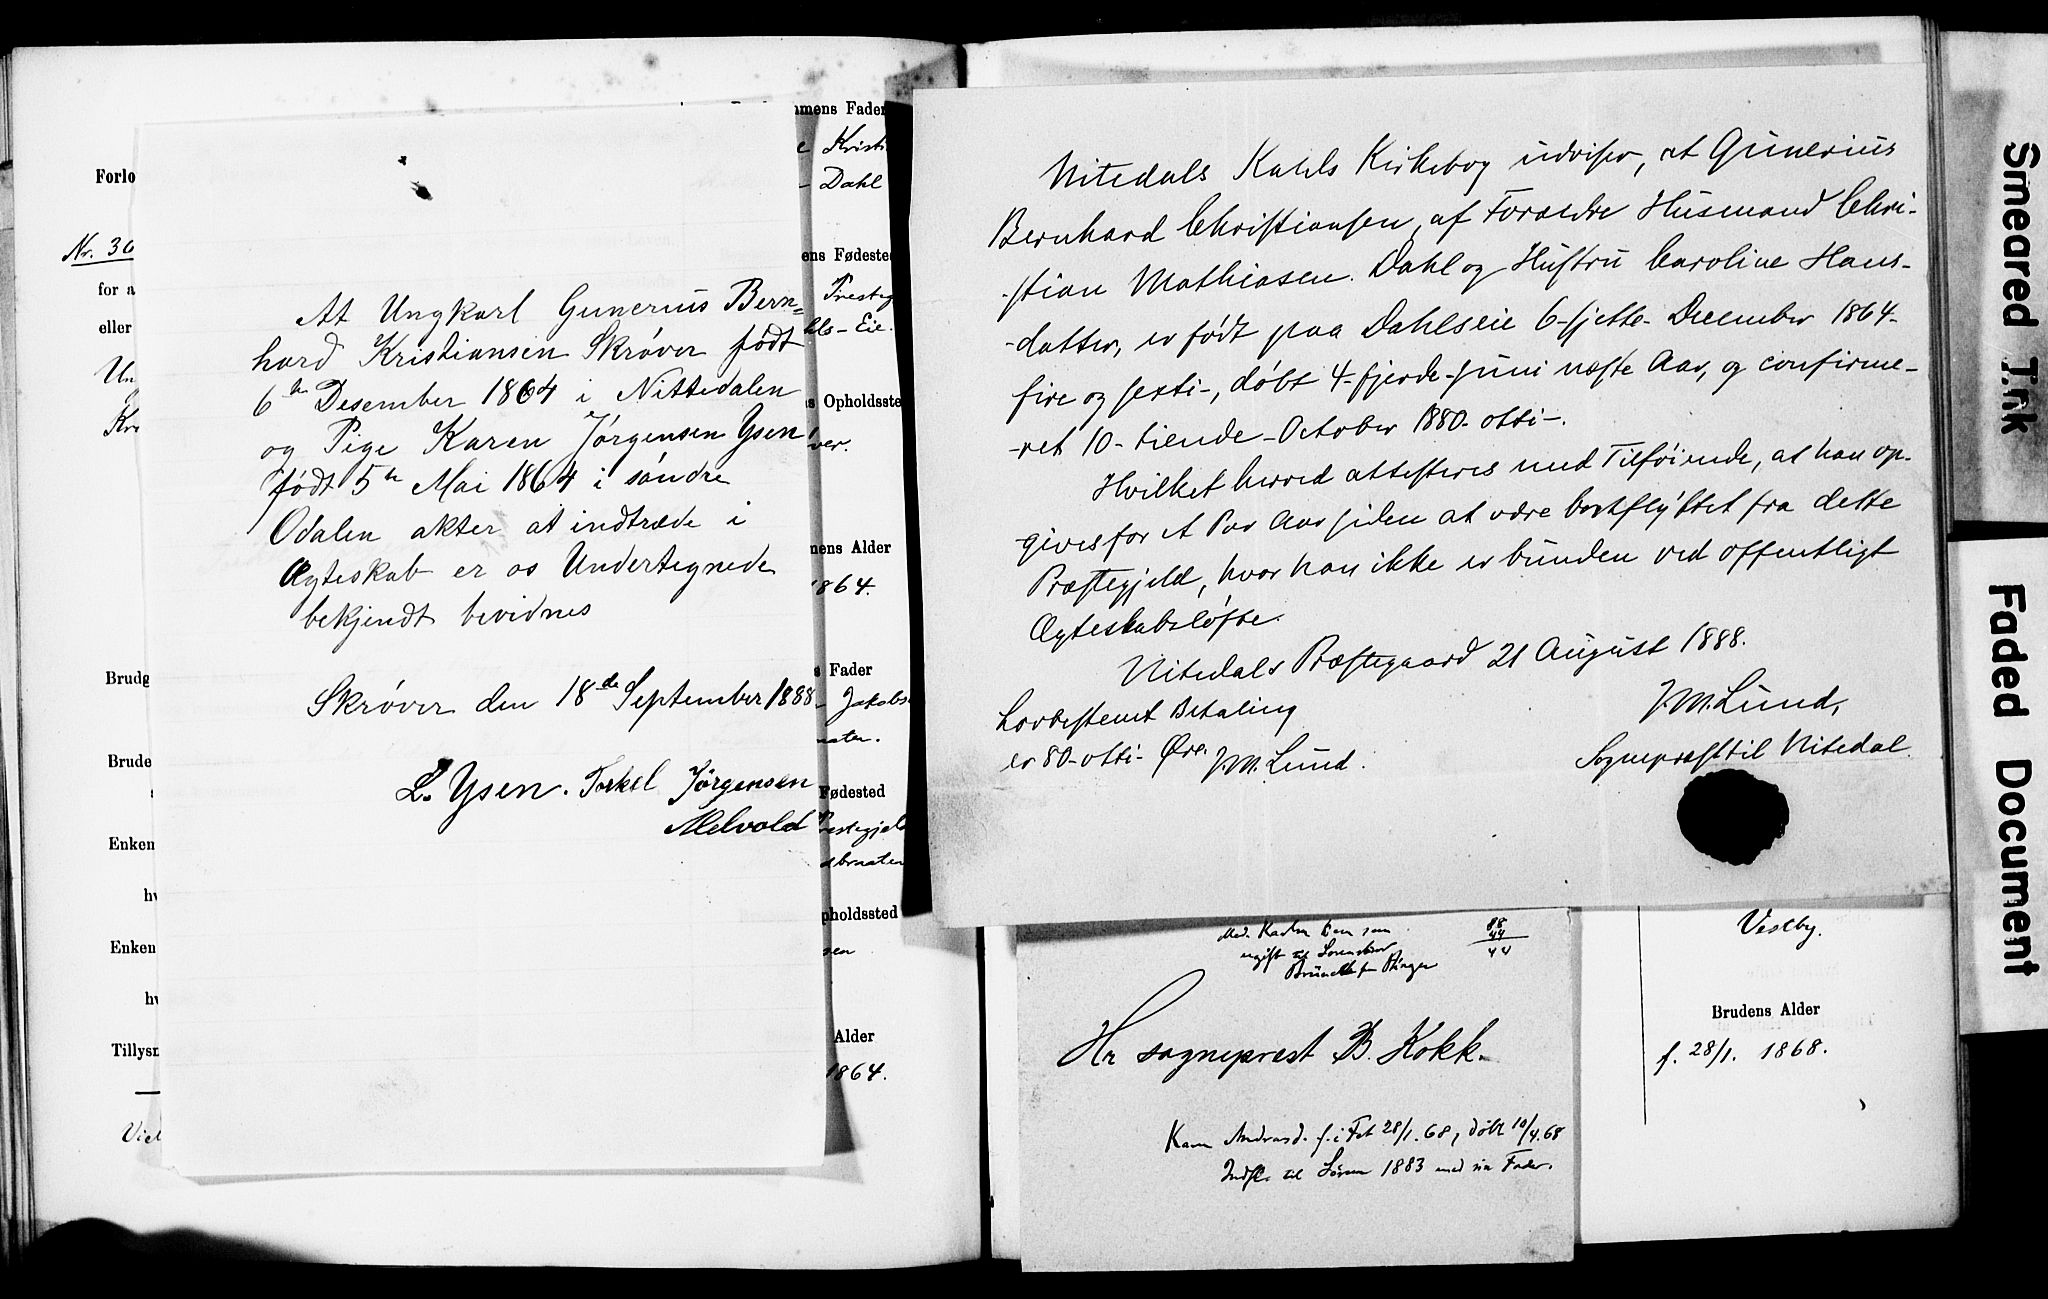 Forlo
Nr. 30
for a
eller
Un
Kr
Brudg
Brude
Enken
hv
Enken
hv
Tillysn
Viel
At Ungkarl Gunerius Bern=
hard Kristiansen Skrøver født
6te Desember 1864 i Nittedalen
og Pige Karen Jørgensen Ysen
født 5te Mai 1864 i söndre
Odalen akter at indtræde i
Ægteskab er os Undertegnede
bekjendt bevidnes
Skrøver den 18de September 1888
L. Ysen. Torkel Jørgensen
Melvold
mens Fader
Kristi
Dahl
ens Fødested
Presteg
als-Eie.
s Opholdsste
ver.
nens Alder
1864.
s Fader
Jakobs
naten.
Fødested
restegjel
dbraaten
pholdssted
sen
Alder
1864.
Nitedals Kalds Kirkebog udviser, at Gunerius
Bernhard Christiansen, af Forældre Husmand Chri-
-stian Mathiasen Dahl og Hustru Caroline Hans-
-datter, er født paa Dahlseie 6-sjette- December 1864-
fire og sexti-, døbt 4-fjerde-Juni næste Aar, og confirme-
-ret 10-tiende-October 1880-otti-.
Hvilket herved attesteres med Tilføiende, at han op-
gives for et Par Aar siden at være bortflyttet fra dette
Præstegjeld, hvor han ikke er bunden ved offentligt
Ægteskabsløfte.
Nitedals Præstegaard 21 August 1888.
J.M. Lund,
Sognepræst til Nitedal.
Lovbestemt Betaling
er 80-otti- Øre. J.M. Lund.
88
44
44
Hr sogneprest B. Kokk.
Karen Andreasd. f. i Fet 28/1. 68, døbt 10/4. 68
Indfl. til Sørum 1883 med sin Fader.
Vestby.
Brudens Alder
f. 28/1. 1868.
Smeared Ink
Faded Document